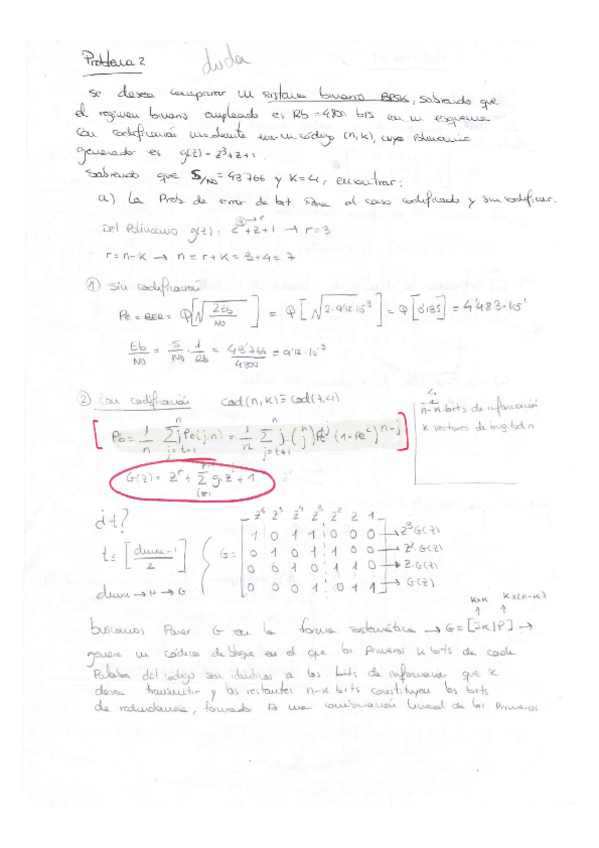 Problema 2
duda
se desea comparar un sistema binario BPSK, sabiendo que
el regimen binario empleado es Rb = 4800 bts en un esquema
con codificación mediante un código (n,k), cuyo Polinomio
generador es g(z) = z³+z+1.
Sabiendo que S/No = 43'766 y K=4, encontrar:
a) La Prob de error de bit Para el caso codificado y sin codificar.
Del Polinomio g(z) = z³+z+1 → r=3
→r
r = n-k → n = r+k = 3+4 = 7
① Sin codificación
Pe = BER = Q[√(2Eb/No)] = Q[√(2·9'12·10⁻³)] = Q[0'135] = 4'483·10⁻¹
Eb/No = S/No · 1/Rb = 43'766/4800 = 9'12·10⁻³
② Con codificación Cod(n,k) ≡ Cod(7,4)
4
n-k bits de información
k vectores de longitud n
Pb = 1/n Σ_{j=t+1}^{n} j Pe(j,n) = 1/n Σ_{j=t+1}^{n} j·(n j) Pe^j (1-Pe^c)^{n-j}
G(z) = z^r + Σ g·z^i + 1
¿t?
z⁶ z⁵ z⁴ z³ z² z 1
t ≤ [(dmin-1)/2]
G =
1 0 1 1 0 0 0 → z³G(z)
0 1 0 1 1 0 0 → z²·G(z)
0 0 1 0 1 1 0 → z·G(z)
0 0 0 1 0 1 1 → G(z)
dmin → H → G
kxk kx(n-k)
buscamos Poner G en la forma sistemática → G = [Ik|P] →
genera un código de bloque en el que los Primeros k bits de cada
Palabra del código son idénticos a los bits de información que se
desea transmitir y los restantes n-k bits constituyen los bits
de redundancia, formado una combinación lineal de los Primeros